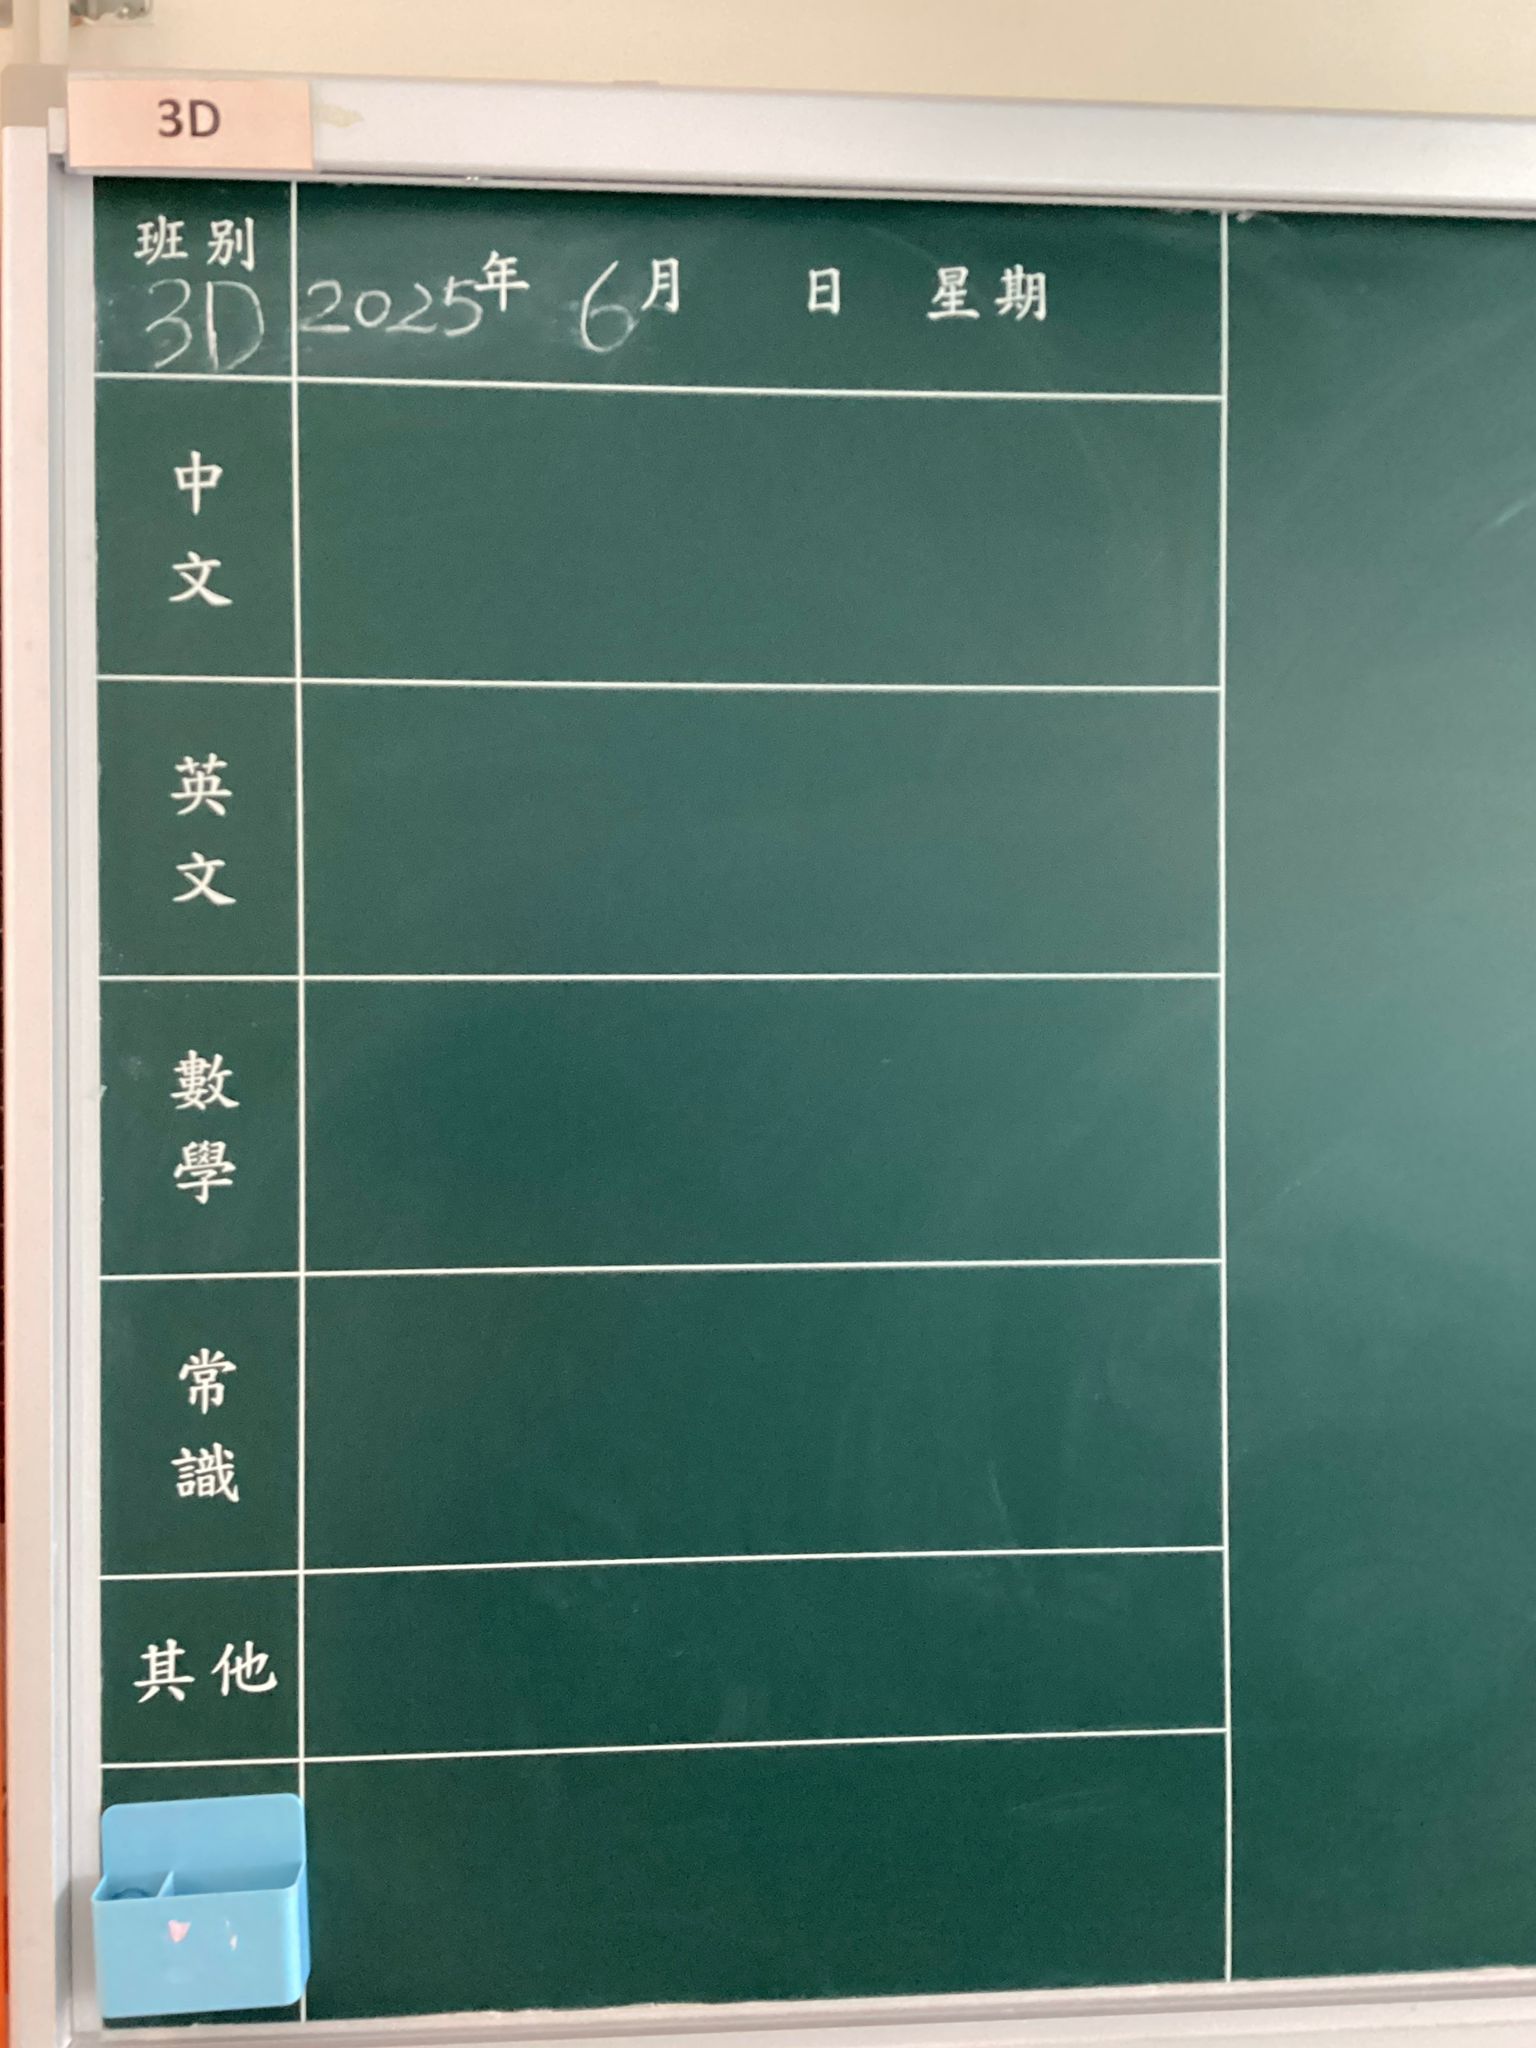 3D
班別
3D
2025年 6月 日 星期
中
文
英
文
數
學
常
識
其他